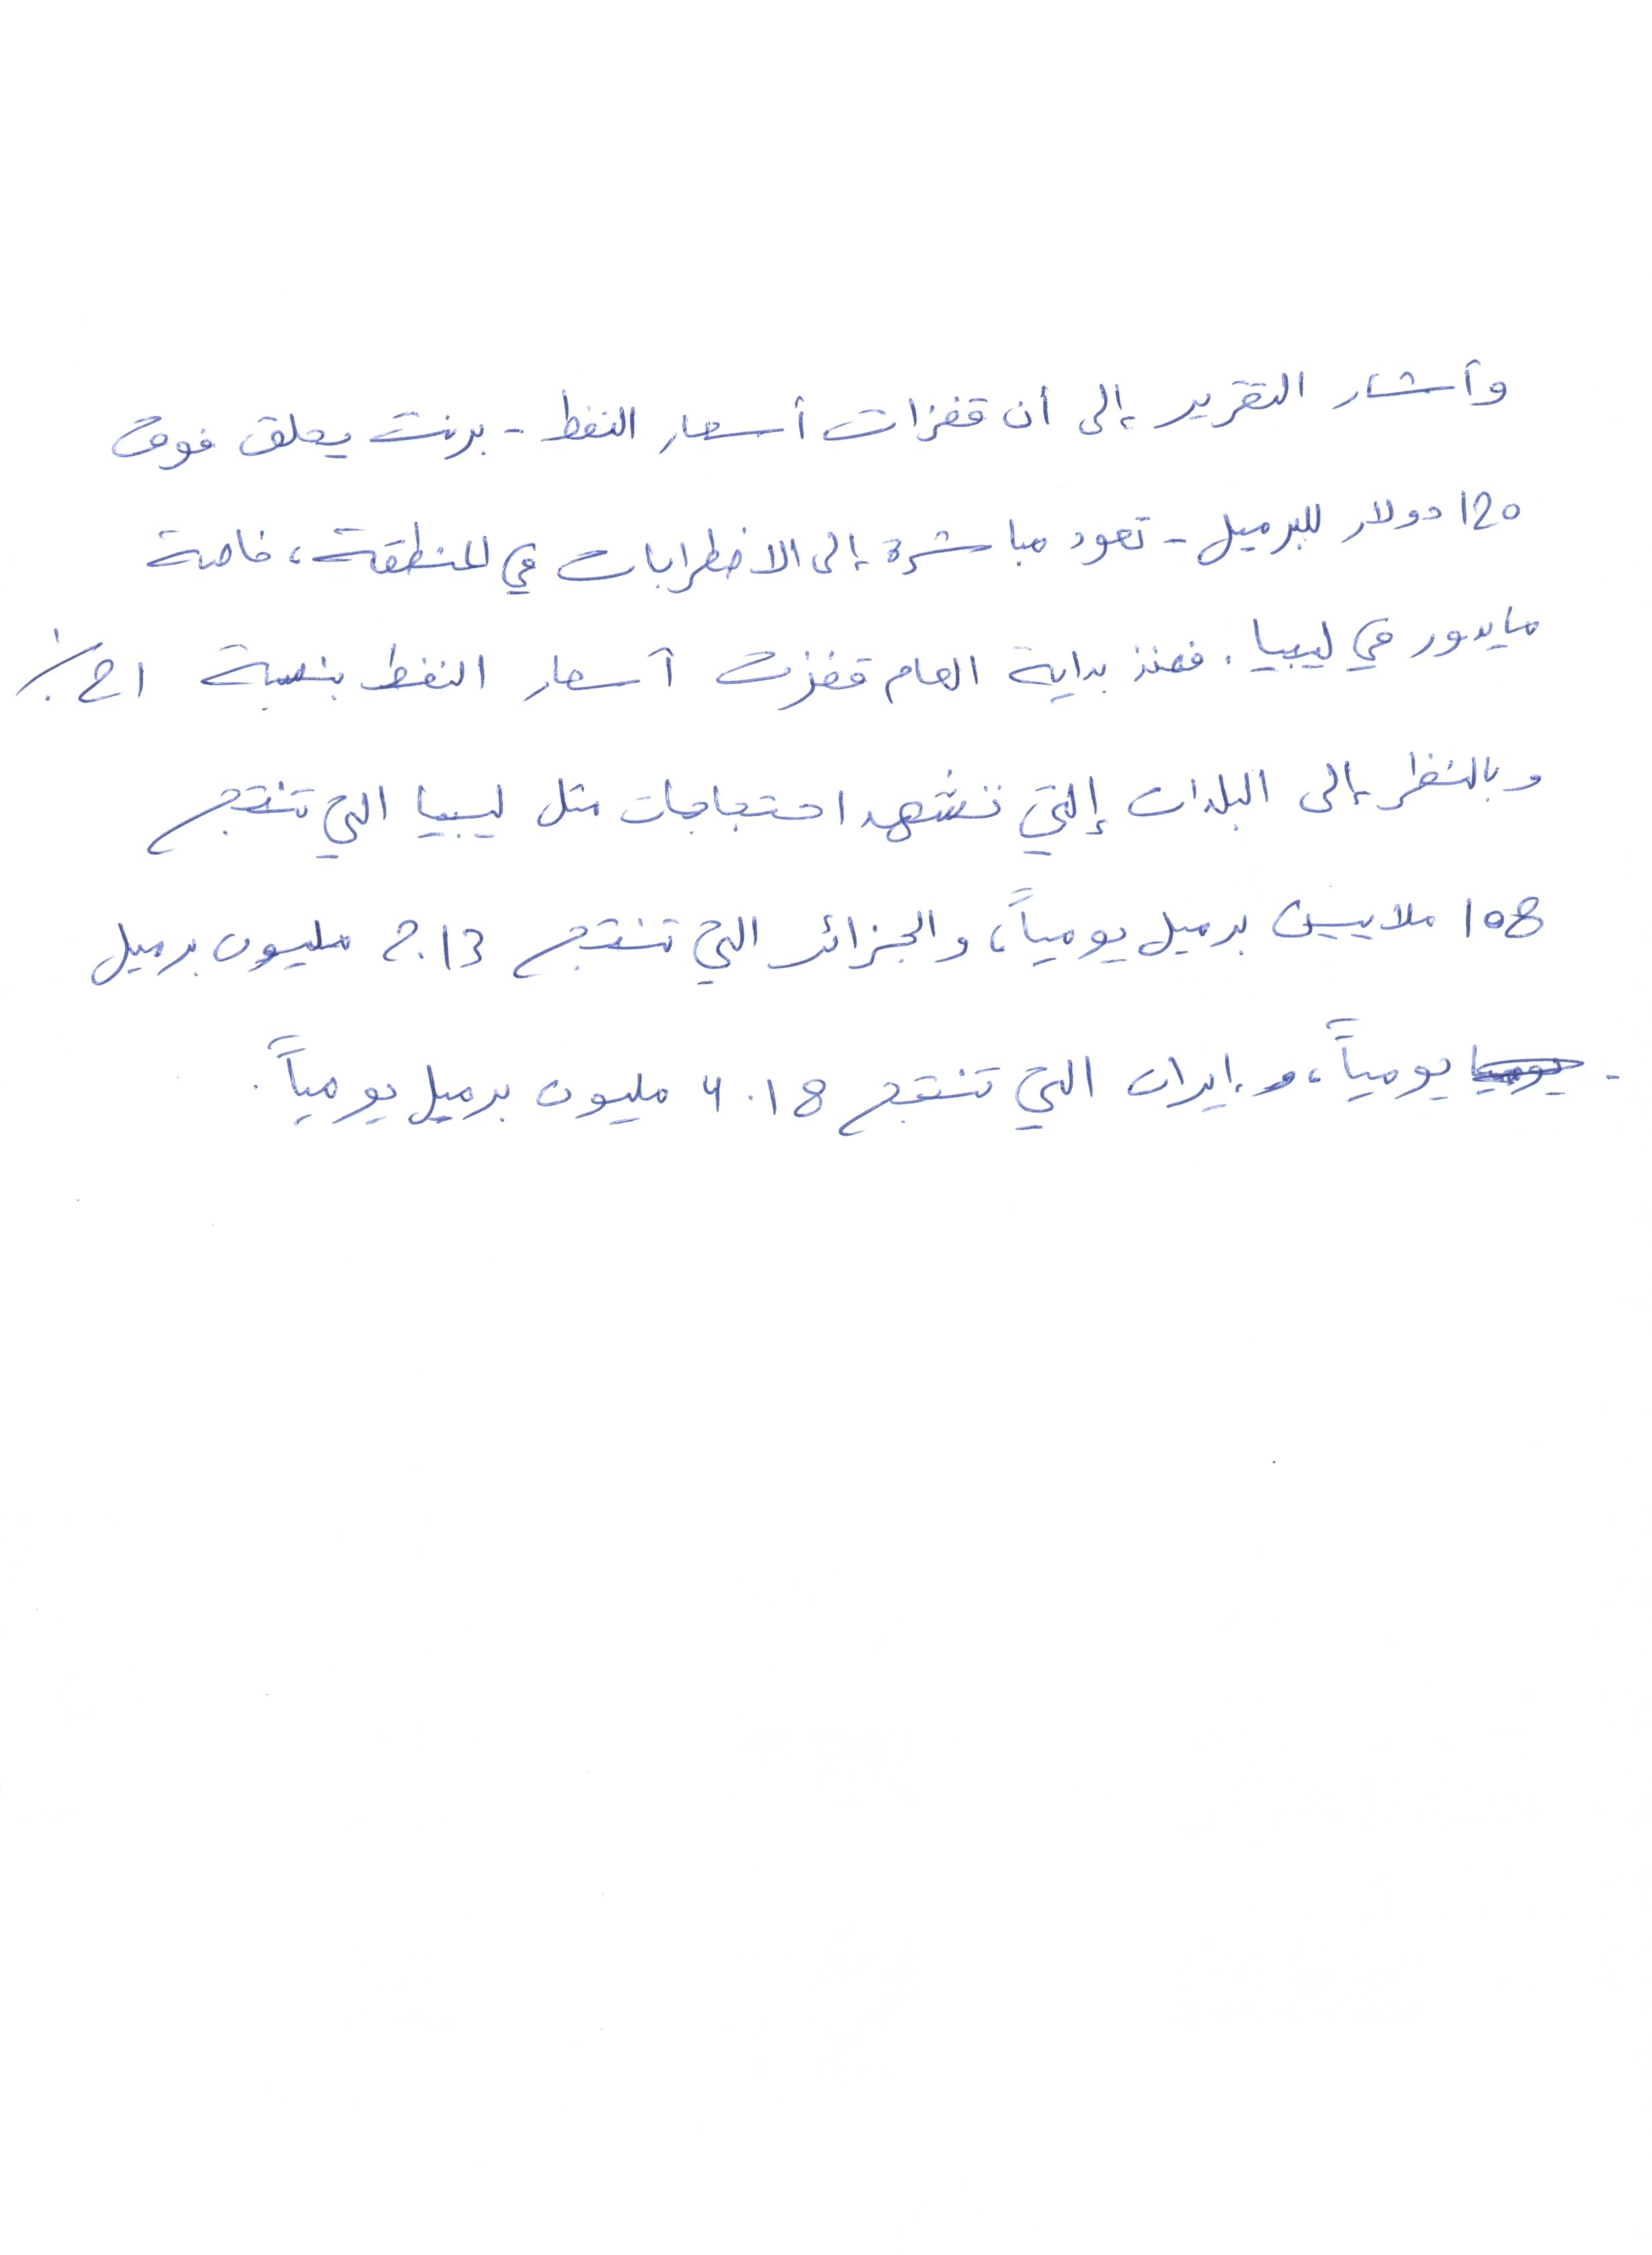 وأشار التقرير إلى أن قفزات أسعار النفط - برنت يحلق فوق
120 دولار للبرميل - تعود مباشرة إلى الاضطرابات في المنطقة، خاصة
مايدور في ليبيا. فمنذ بداية العام قفزت أسعار النفط بنسبة 21٪
وبالنظر إلى البلدان إلتي تشهد احتجاجات مثل ليبيا التي تنتج
108 ملايين برميل يومياً، والجزائر التي تنتج 2.13 مليون برميل
يومياً، وإيران التي تنتج 4.18 مليون برميل يومياً.